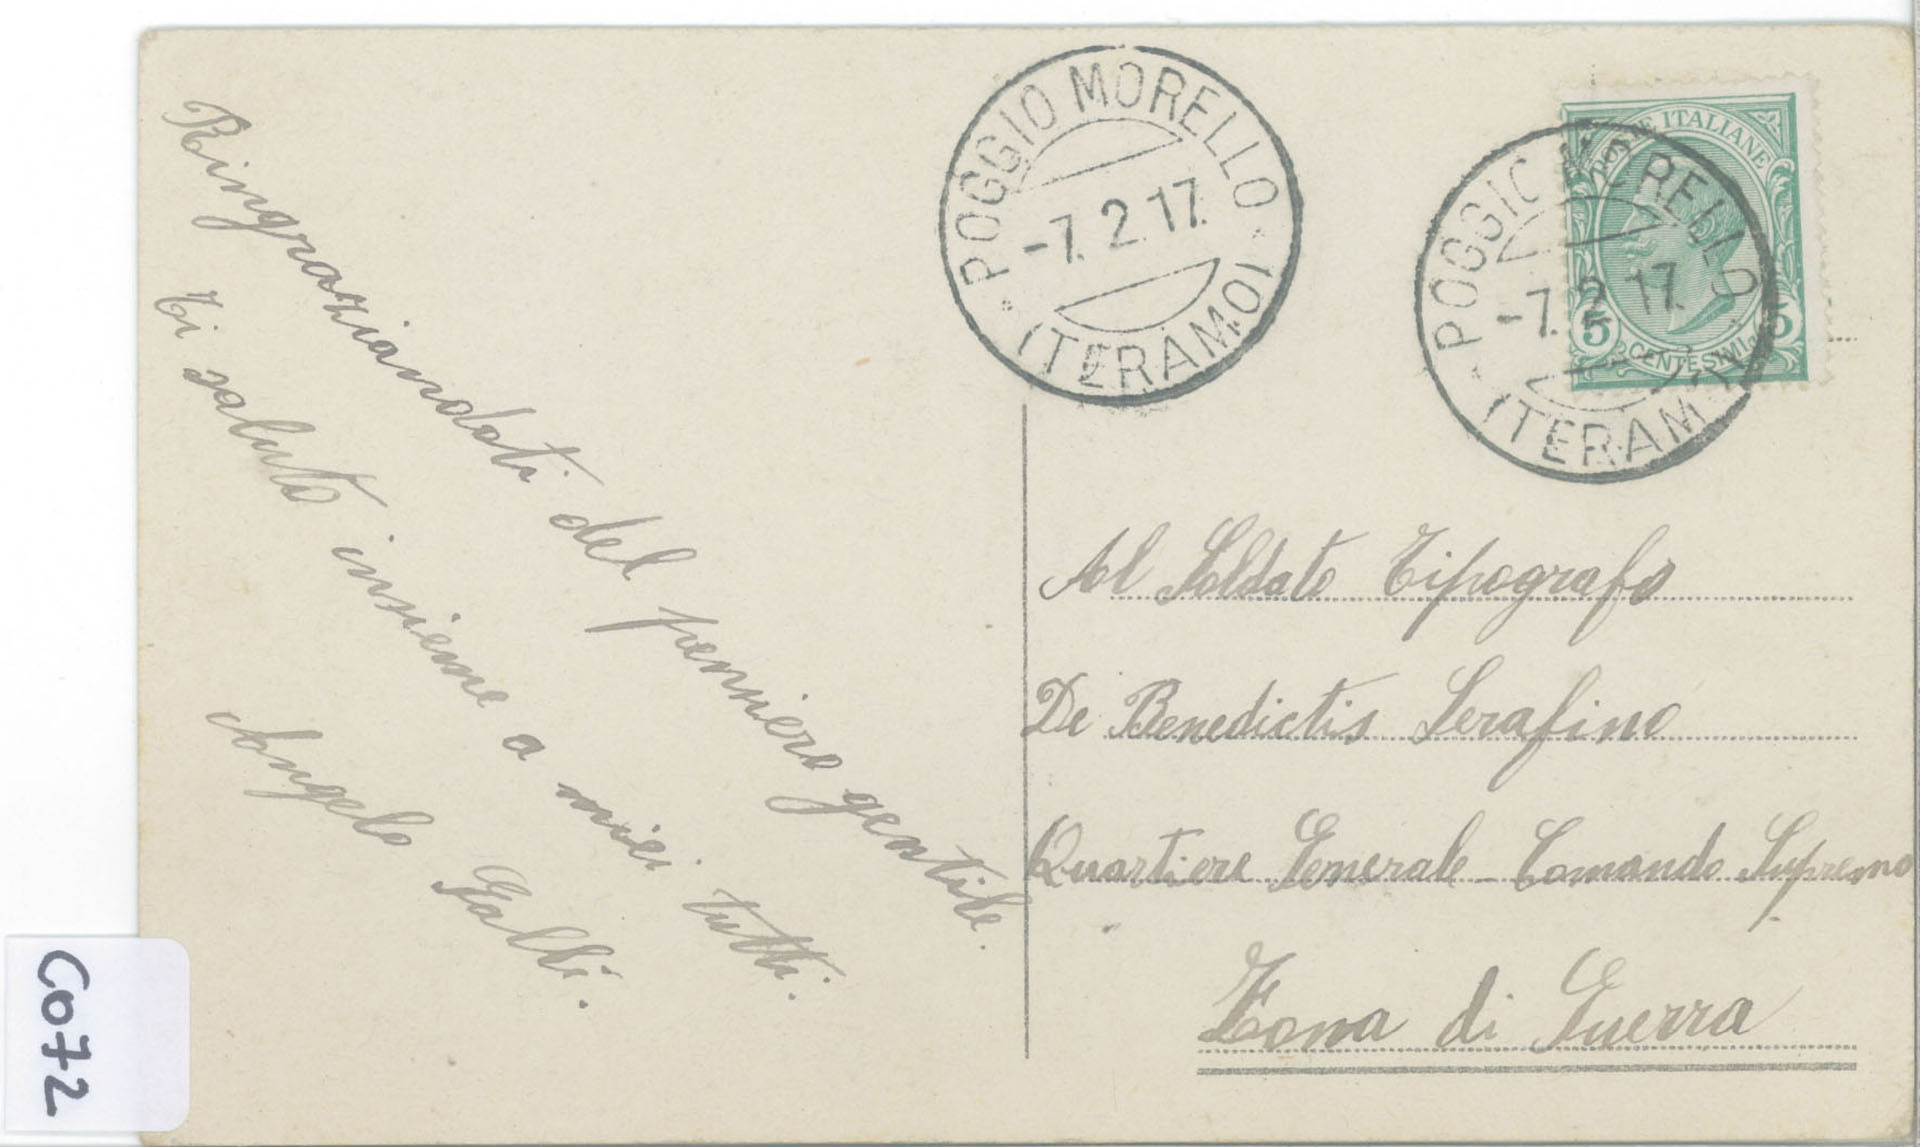 Ringraziandoti del pensiero gentile.
Ti saluto insieme a miei tutti.
Angelo Galli.
POGGIO MORELLO
-7. 2. 17.
(TERAMO)
POSTE ITALIANE
5 5
CENTESIMI
POGGIO MORELLO
-7. 2. 17.
(TERAMO)
Al Soldato Tipografo
De Benedictis Serafino
Quartiere Generale - Comando Supremo
Zona di Guerra
C072